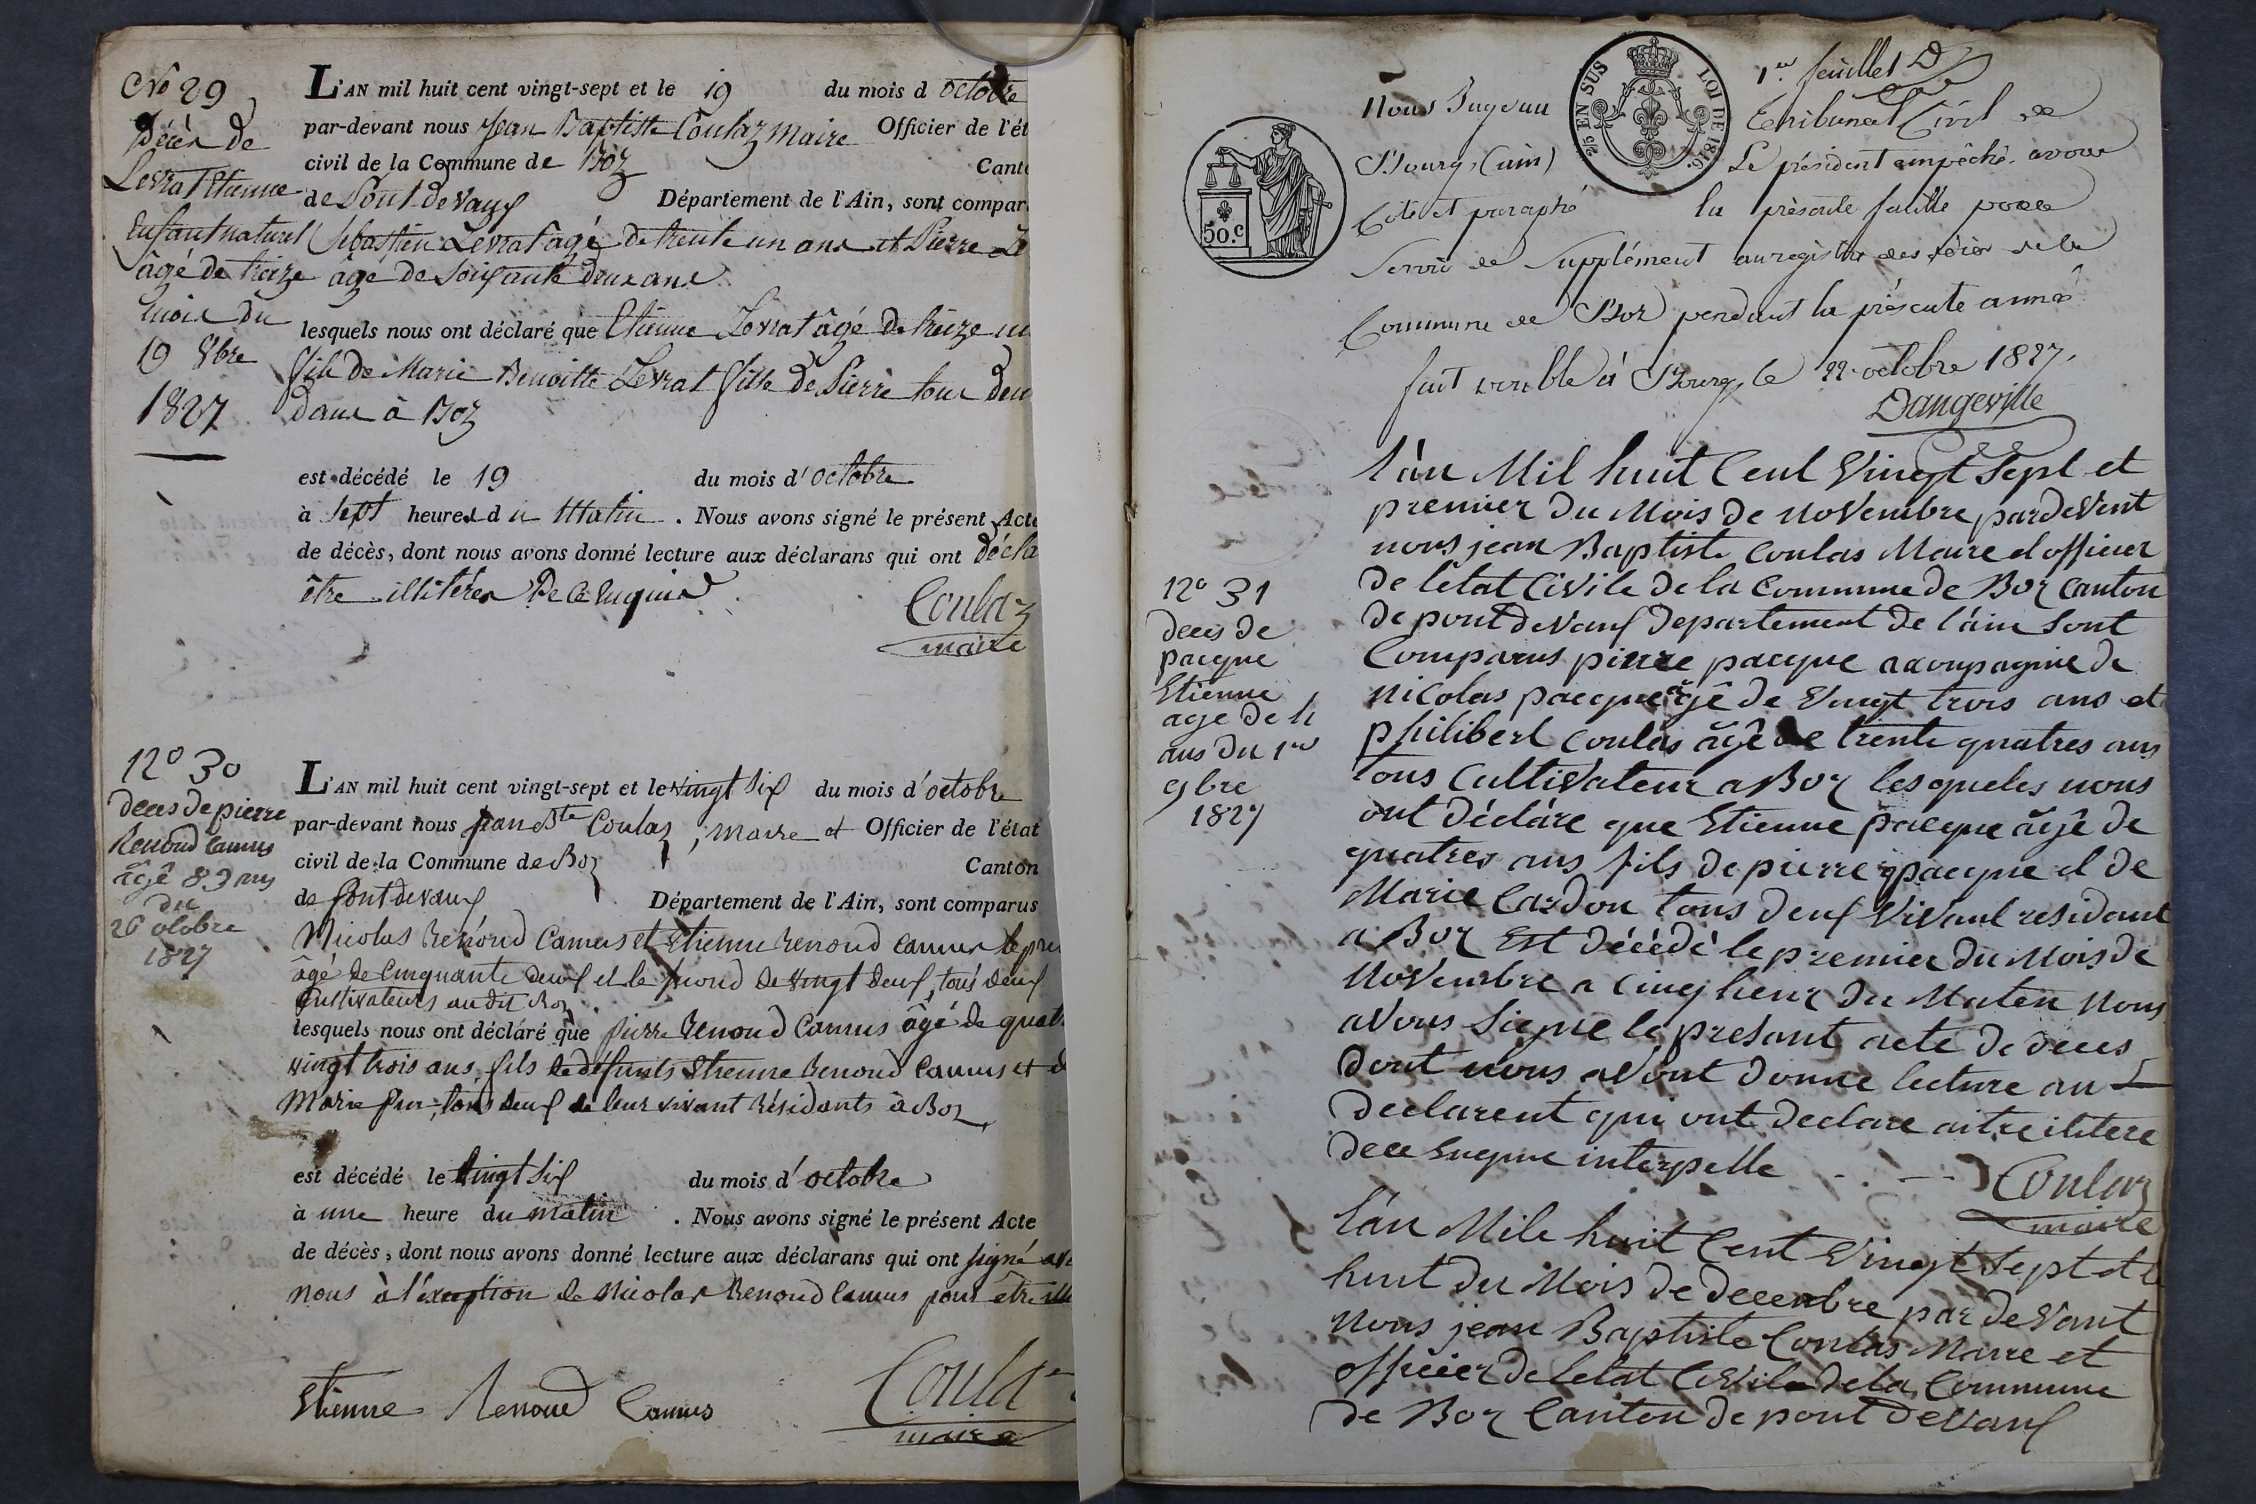 No 29
Décès de
Levrat Etienne
Enfant naturel
âgé de treize
mois du
19 8bre
1827
L'AN mil huit cent vingt-sept et le 19 du mois d octobre
par-devant nous Jean Baptiste Coulaz maire Officier de l'ét
civil de la Commune de Boz Cant
de Pont de vaux Département de l'Ain, sont compar
Sébastien Levrat âgé de trente un ans et Pierre Le
âgé de soixante deux ans
lesquels nous ont déclaré que Etienne Levrat âgé de treize m
fils de Marie Benoitte Levrat fille de Pierre tous deu
dans à Boz
est décédé le 19 du mois d' octobre
à sept heures du Matin . Nous avons signé le présent Acte
de décès, dont nous avons donné lecture aux déclarans qui ont décla
être illitérés De ce Enquis
Coulaz
maire
12º 30
deces de pierre
Renoud Camus
âgé 83 ans
du
26 octobre
1827
L'AN mil huit cent vingt-sept et le vingt six du mois d'octobre
par-devant nous jean Bte Coulaz, maire et Officier de l'état
civil de la Commune de Boz Canton
de Pont de vaux Département de l'Ain, sont comparus
Nicolas Renoud Camus et Etienne Renoud Camus le pre
âgé de Cinquante deux et le second de vingt deux, tous deux
Cultivateurs audit Boz
lesquels nous ont déclaré que pierre Renoud Camus âgé de quat
vingt trois ans fils de défunts Etienne Renoud Camus et d
Marie , tous deux de leur vivant Résidants à Boz,
est décédé le vingt six du mois d'octobre
à une heure du matin . Nous avons signé le présent Acte
de décès, dont nous avons donné lecture aux déclarans qui ont signé av
nous à l'éxception de Nicolas Renoud Camus pour être ill
Etienne Renoud Camus
Coulaz
maire
25 EN SUS LOI DE 1816.
50.c
1er feuillet D
Nous Juge au Tribunal Civil de
Bourg (ain) Le président empêché, avons
Coté et paraphé la présente feuille pour
Servir de Supplément au registre des décès de la
Commune de Boz pendant la présente année
fait double à Bourg, le 22 octobre 1827.
Dangeville
12º 31
deces de
pacque
Etienne
age de 4
ans du 1er
9bre
1827
l'àn Mil huit Cent Vingt Sept et
premier du Mois de Novembre pardevent
nous jean Baptiste Coulas Maire et officier
de l'etat Civile de la Commune de Boz Canton
de pont de Vaux departement de l'ain sont
Comparus pierre pacque acconpagnie de
Nicolas pacque âgé de Vingt trois ans et
philibert Coulas âgé de trente quatres ans
tous Cultivateur a Boz lesqueles nous
ont Déclare que Etienne pacque âgé de
quatres ans fils de pierre pacque et de
Marie Cardon tous deux Vivant residant
a Boz Est décédé le premier du Mois de
Novembre a Cinq heur du Maten Nous
aVons Signe le presant acte de deces
dont nous aVont donne lecture au
declarent qui ont declare aitre ilitere
dece Enquie interpelle
Coulaz
maire
l'àn Mile huit Cent Vingt Sept et le
huit du Mois de decenbre par deVant
Nous jean Baptiste Coulas Maire et
officier de letat Civile dela Commune
de Boz Canton de pont deVaux